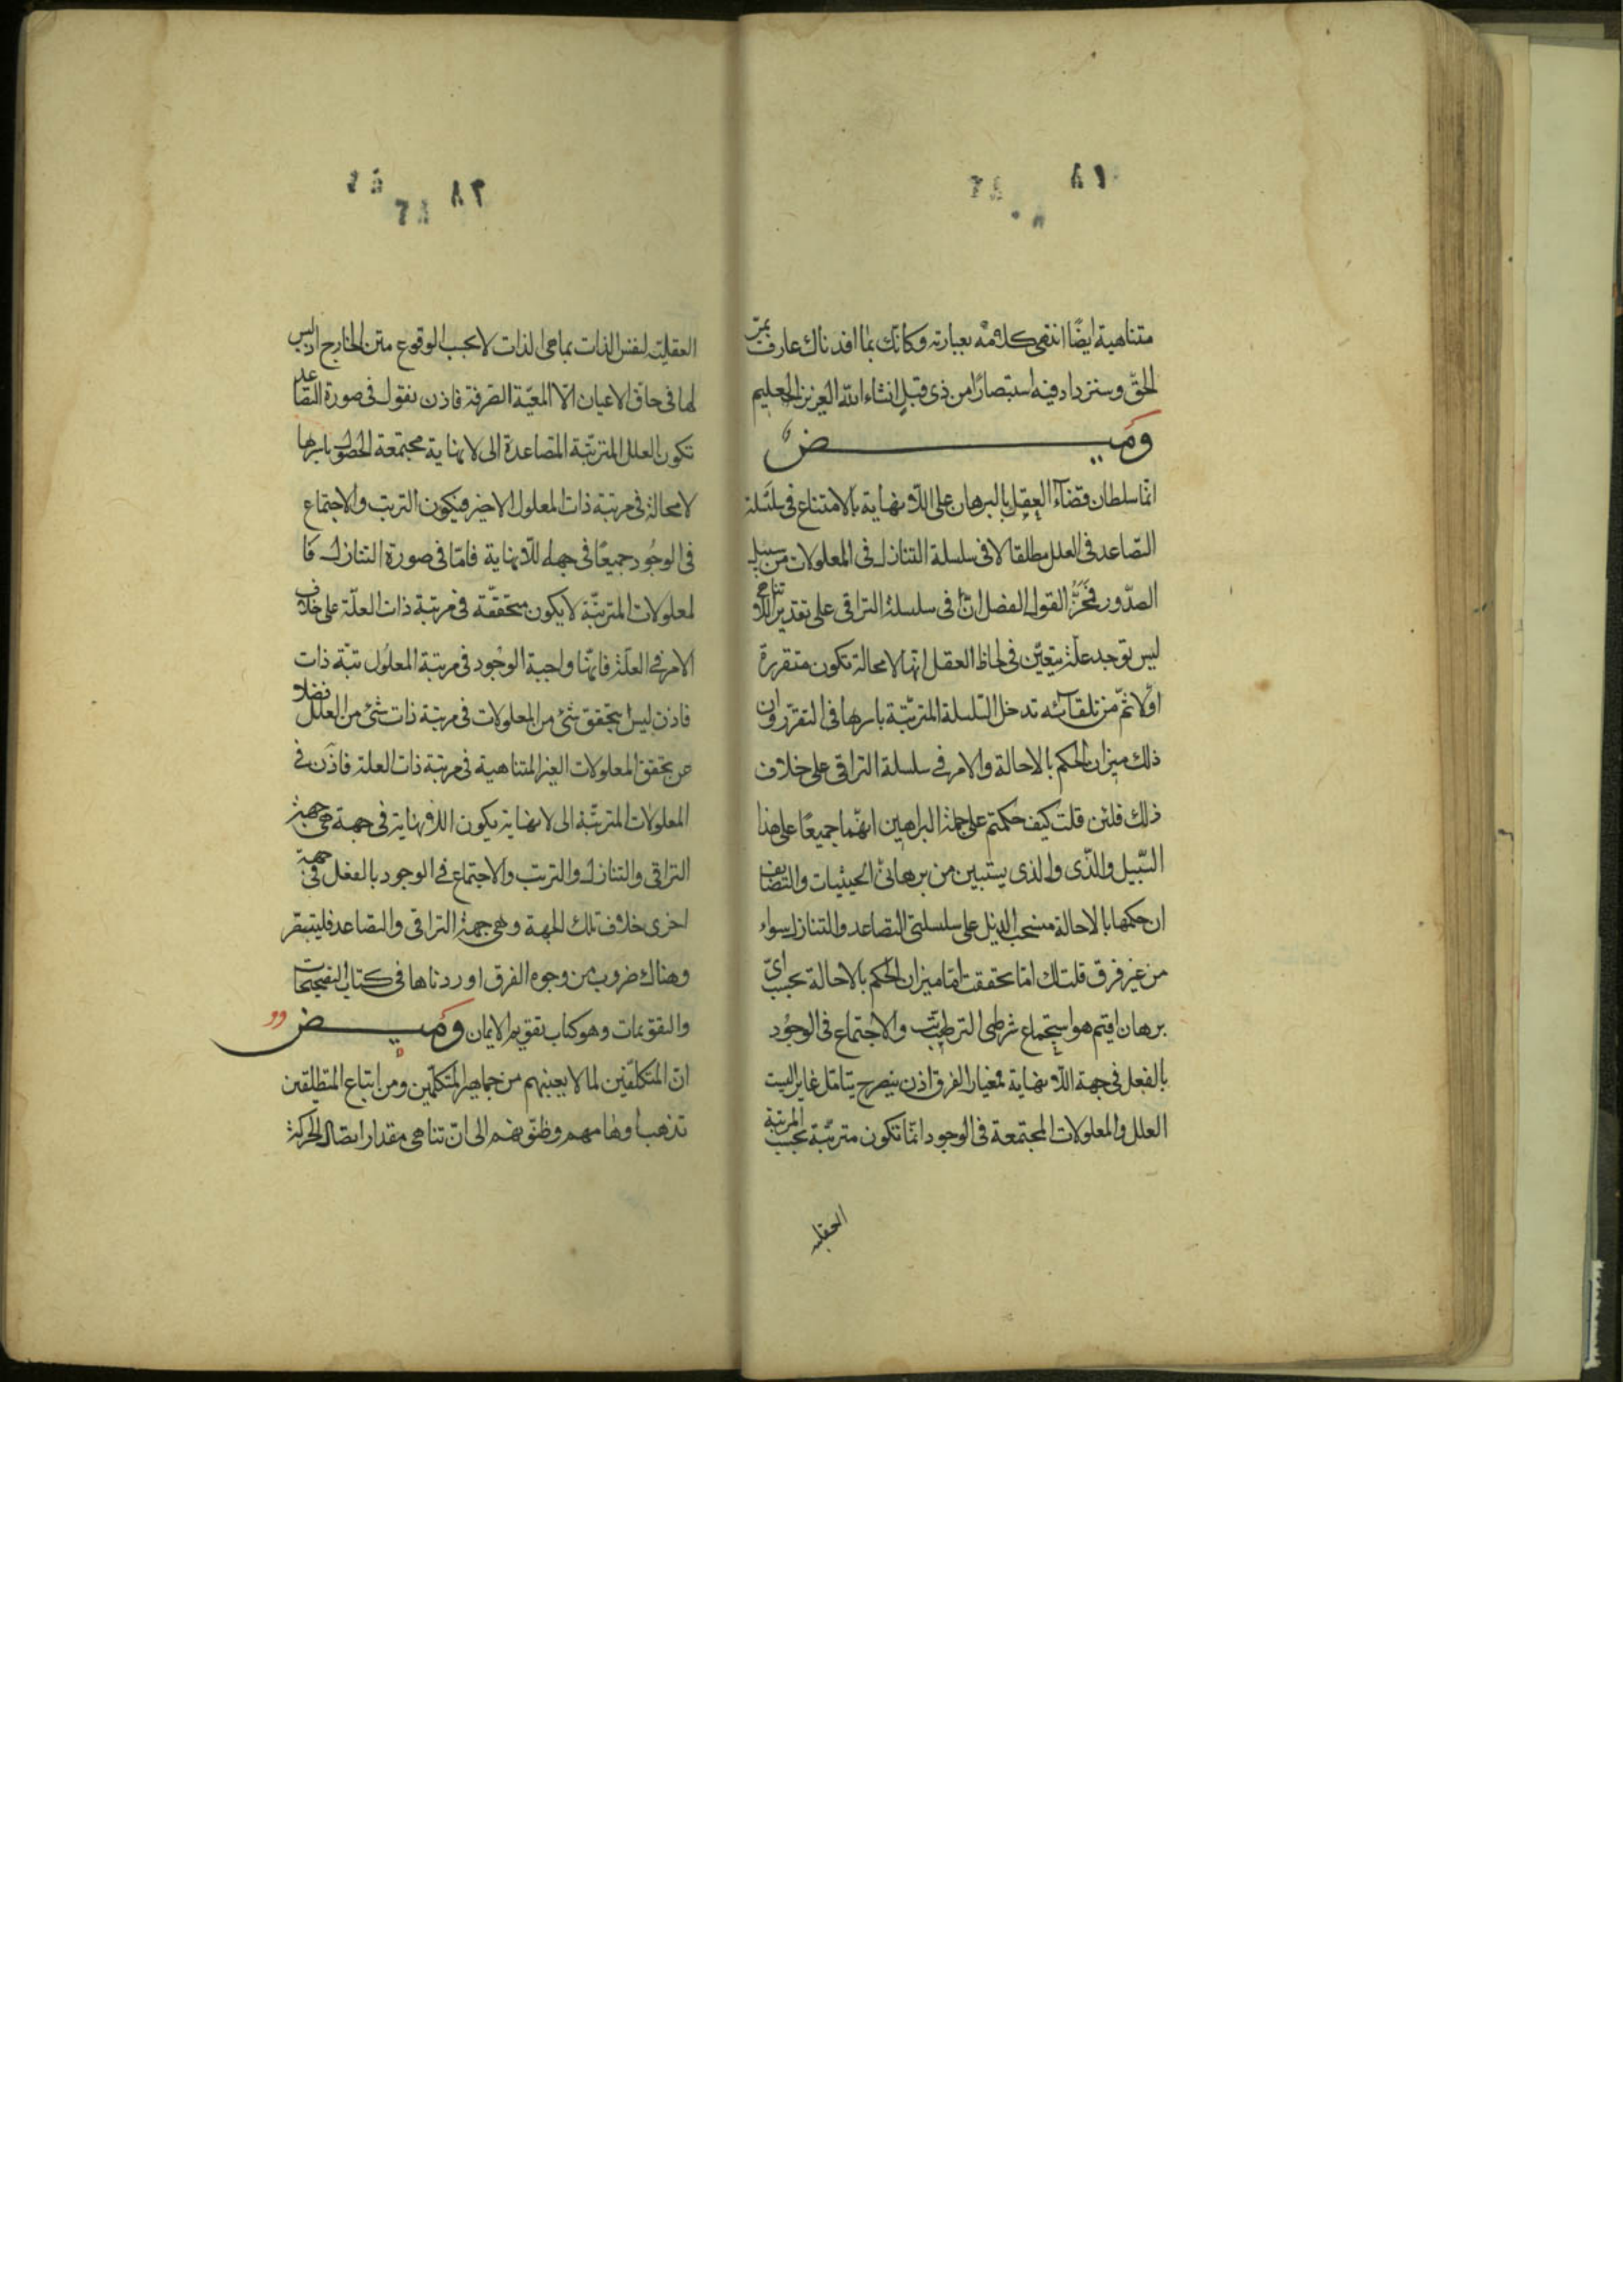 متناهية ايضًا انتهى كلامه بعبارته وكانّك بما افدناك عارف بمرّ
الحقّ وستزداد فيه استبصارًا من ذى قبل ان شاء الله العزيز العليم
وميض
انّما سلطان قضاء العقل بالبرهان على اللّانهاية بالامتناع فى سلسلة
التصاعد فى العلل مطلقا لا فى سلسلة التنازل فى المعلولات من سبيل
الصّدور القول الفصل انّ فى سلسلة التراقى على تقدير اللّا تناهى
ليس توجد علّة يتعيّن فى لحاظ العقل انّها لامحالة تكون متقررة
اوّلا ثمّ من تلقائه تدخل السّلسلة المترتّبة باسرها فى التقرّر وان
ذلك ميزان الحكم بالاحالة والامر فى سلسلة التراقى على خلاف
ذلك فلئن قلت كيف حكمتم على جملة البراهين انّهما جميعًا على هذا
السّبيل والّذى والذى يستبين من برهانى الحيثيات والتضايف
ان حكمها بالاحالة منسحب الذيل على سلسلتى التصاعد والتنازل سواء
من غير فرق قلت لك اما تحققت انّما ميزان الحكم بالاحالة بحسب اىّ
برهان اقيم هو استجماع شرطى الترتيب والاجتماع فى الوجُود
بالفعل فى جهة اللّانهاية فمعيار الفرق اذن ينصرح بتامّل غاير اليست
العلل والمعلولات المجتمعة فى الوجود انّما تكون مترتّبة بحسب المرتبة
العقلية
العقلية لنفس الذات بما هى الذات لا بحسب الوقوع متن الخارج اذ ليس
لها فى حاقّ الاعيان الّا المعيّة الصّرفة فاذن نقول فى صورة التصاعد
تكون العلل المترتّبة المتصاعدة الى لا نهاية مجتمعة الحصول باسرها
لامحالة فى مرتبة ذات المعلول الاخير فيكون الترتب والاجتماع
فى الوجُود جميعًا فى جهة اللّانهاية فامّا فى صورة التنازل فا
لمعلولات المترتّبة لا يكون متحققّة فى مرتبة ذات العلّة على خلاف
الامر فى العلّة فانّها واجبة الوجُود فى مرتبة المعلُول ذات
فاذن ليس يتحقق شئ من المعلولات فى مرتبة ذات شئ من العلل فضلا
عن تحقق المعلولات الغير المتناهية فى مرتبة ذات العلة فاذن فى
المعلولات المترتّبة الى لا نهاية يكون اللّانهاية فى جهة هى جهة
التراقى والتنازل والترتب والاجتماع فى الوجود بالفعل فى جهة
اخرى خلاف تلك الجهة وهى جهة التراقى والتصاعد فليتبصّر
وهناك ضروب من وجوه الفرق اوردناها فى كتاب التصحيحات
والتقويمات وهو كتاب تقويم الايمان وميض
انّ المتكلّفين لما لا يعنيهم من جماهير المتكلّمين ومن اتباع المتطلّقين
تذهب اوهامهم وظنونهم الى انّ تناهى مقدار اتصال الحركة